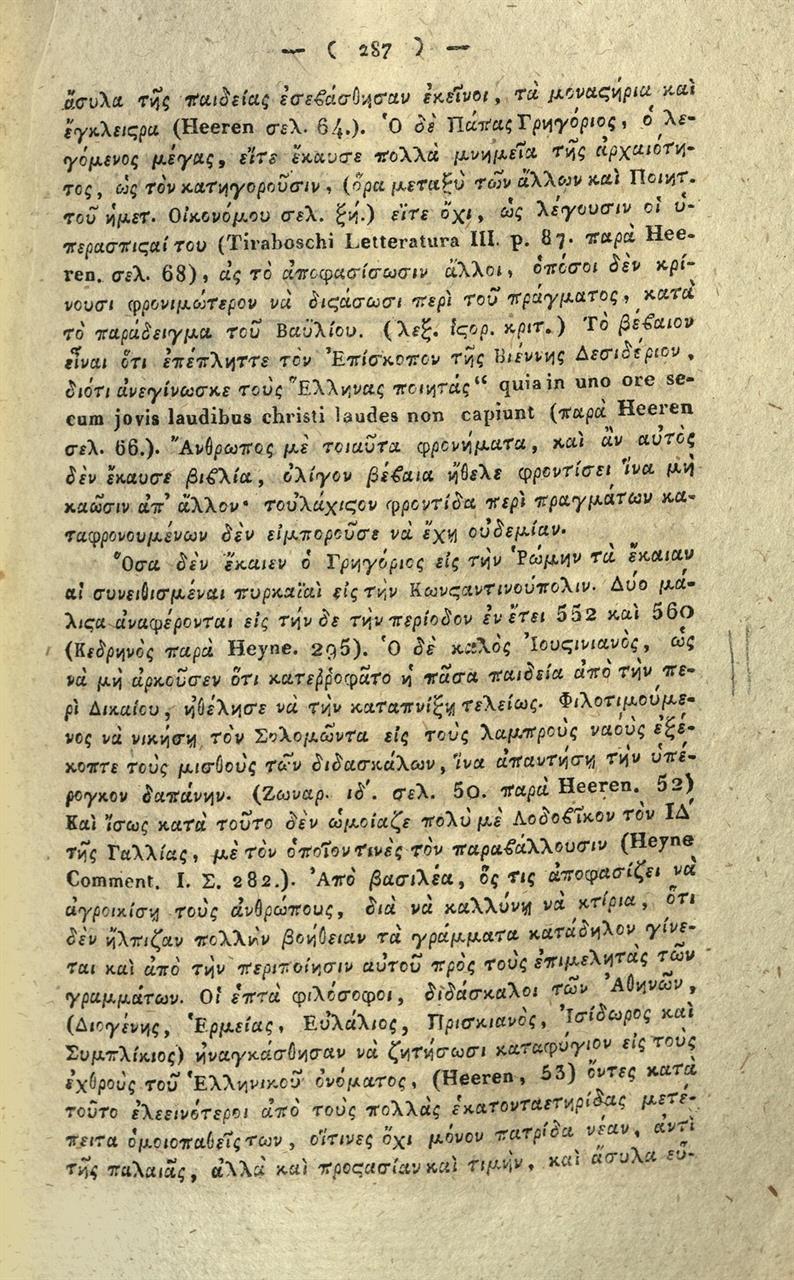 — ( 287 ) —
ἄσυλα τῆς παιδείας ἐσεβάσθησαν ἐκεῖνοι, τὰ μοναϛήρια καὶ
ἔγκλειϛρα (Heeren σελ. 64.). Ὁ δὲ Πάπας Γρηγόριος, ὁ λε-
γόμενος μέγας, εἴτε ἔκαυσε πολλὰ μνημεῖα τῆς ἀρχαιότη-
τος, ὡς τὸν κατηγοροῦσιν, (ὅρα μεταξὺ τῶν ἄλλων καὶ Ποιητ.
τοῦ ἡμετ. Οἰκονόμου σελ. ξή.) εἴτε ὄχι, ὡς λέγουσιν οἱ ὑ-
περασπιϛαί του (Tiraboschi Letteratura III. p. 87. παρὰ Hee-
ren. σελ. 68), ἂς τὸ ἀποφασίσωσιν ἄλλοι, ὁπόσοι δὲν κρί-
νουσι φρονιμώτερον νὰ διϛάσωσι περὶ τοῦ πράγματος, κατὰ
τὸ παράδειγμα τοῦ Βαϋλίου. (λεξ. ἱϛορ. κριτ.) Τὸ βέβαιον
εἶναι ὅτι ἐπέπληττε τὸν Ἐπίσκοπον τῆς Βιέννης Δεσιδέριον,
διότι ἀνεγίνωσκε τοὺς Ἕλληνας ποιητάς“ quia in uno ore se-
cum jovis laudibus christi laudes non capiunt (παρὰ Heeren
σελ. 66.). Ἄνθρωπος μὲ τοιαῦτα φρονήματα, καὶ ἂν αὐτὸς
δὲν ἔκαυσε βιβλία, ὀλίγον βέβαια ἤθελε φροντίσει ἵνα μὴ
καῶσιν ἀπ' ἄλλον· τοὐλάχιϛον φροντίδα περὶ πραγμάτων κα-
ταφρονουμένων δὲν εἰμποροῦσε νὰ ἔχῃ οὐδεμίαν.
Ὅσα δὲν ἔκαιεν ὁ Γρηγόριος εἰς τὴν Ῥώμην τὰ ἔκαιαν
αἱ συνειθισμέναι πυρκαϊαὶ εἰς τὴν Κωνϛαντινούπολιν. Δύο μά-
λιϛα ἀναφέρονται εἰς τήν δε τὴν περίοδον ἐν ἔτει 552 καὶ 560
(Κεδρηνὸς παρὰ Heyne. 295). Ὁ δὲ καλὸς Ἰουϛινιανὸς, ὡς
νὰ μὴ ἀρκοῦσεν ὅτι κατεῤῥοφᾶτο ἡ πᾶσα παιδεία ἀπὸ τὴν πε-
ρὶ Δικαίου, ἠθέλησε νὰ τὴν καταπνίξῃ τελείως. Φιλοτιμούμε-
νος νὰ νικήσῃ τὸν Σολομῶντα εἰς τοὺς λαμπροὺς ναοὺς ἐξέ-
κοπτε τοὺς μισθοὺς τῶν διδασκάλων, ἵνα ἀπαντήσῃ τὴν ὑπέ-
ρογκον δαπάνην. (Ζωναρ. ιδ'. σελ. 50. παρὰ Heeren. 52)
Καὶ ἴσως κατὰ τοῦτο δὲν ὡμοίαζε πολὺ μὲ Λοδοβῖκον τὸν ΙΔ
τῆς Γαλλίας, μὲ τὸν ὁποῖον τινὲς τὸν παραβάλλουσιν (Heyne
Comment. I. Σ. 282.). Ἀπὸ βασιλέα, ὅς τις ἀποφασίζει νὰ
ἀγροικίσῃ τοὺς ἀνθρώπους, διὰ νὰ καλλύνῃ νὰ κτίρια, ὅτι
δὲν ἤλπιζαν πολλὴν βοήθειαν τὰ γράμματα κατάδηλον γίνε-
ται καὶ ἀπὸ τὴν περιποίησιν αὐτοῦ πρὸς τοὺς ἐπιμελητὰς τῶν
γραμμάτων. Οἱ ἑπτὰ φιλόσοφοι, διδάσκαλοι τῶν Ἀθηνῶν,
(Διογένης, Ἑρμείας, Εὐλάλιος, Πρισκιανὸς, Ἰσίδωρος καὶ
Συμπλίκιος) ἠναγκάσθησαν νὰ ζητήσωσι καταφύγιον εἰς τοὺς
ἐχθροὺς τοῦ Ἑλληνικοῦ ὀνόματος, (Heeren, 53) ὄντες κατὰ
τοῦτο ἐλεεινότεροι ἀπὸ τοὺς πολλὰς ἑκατονταετηρίδας μετέ-
πειτα ὁμοιοπαθεῖς των, οἵτινες ὄχι μόνον πατρίδα νέαν, ἀντὶ
τῆς παλαιᾶς, ἀλλὰ καὶ προϛασίαν καὶ τιμὴν, καὶ ἄσυλα εὐ-